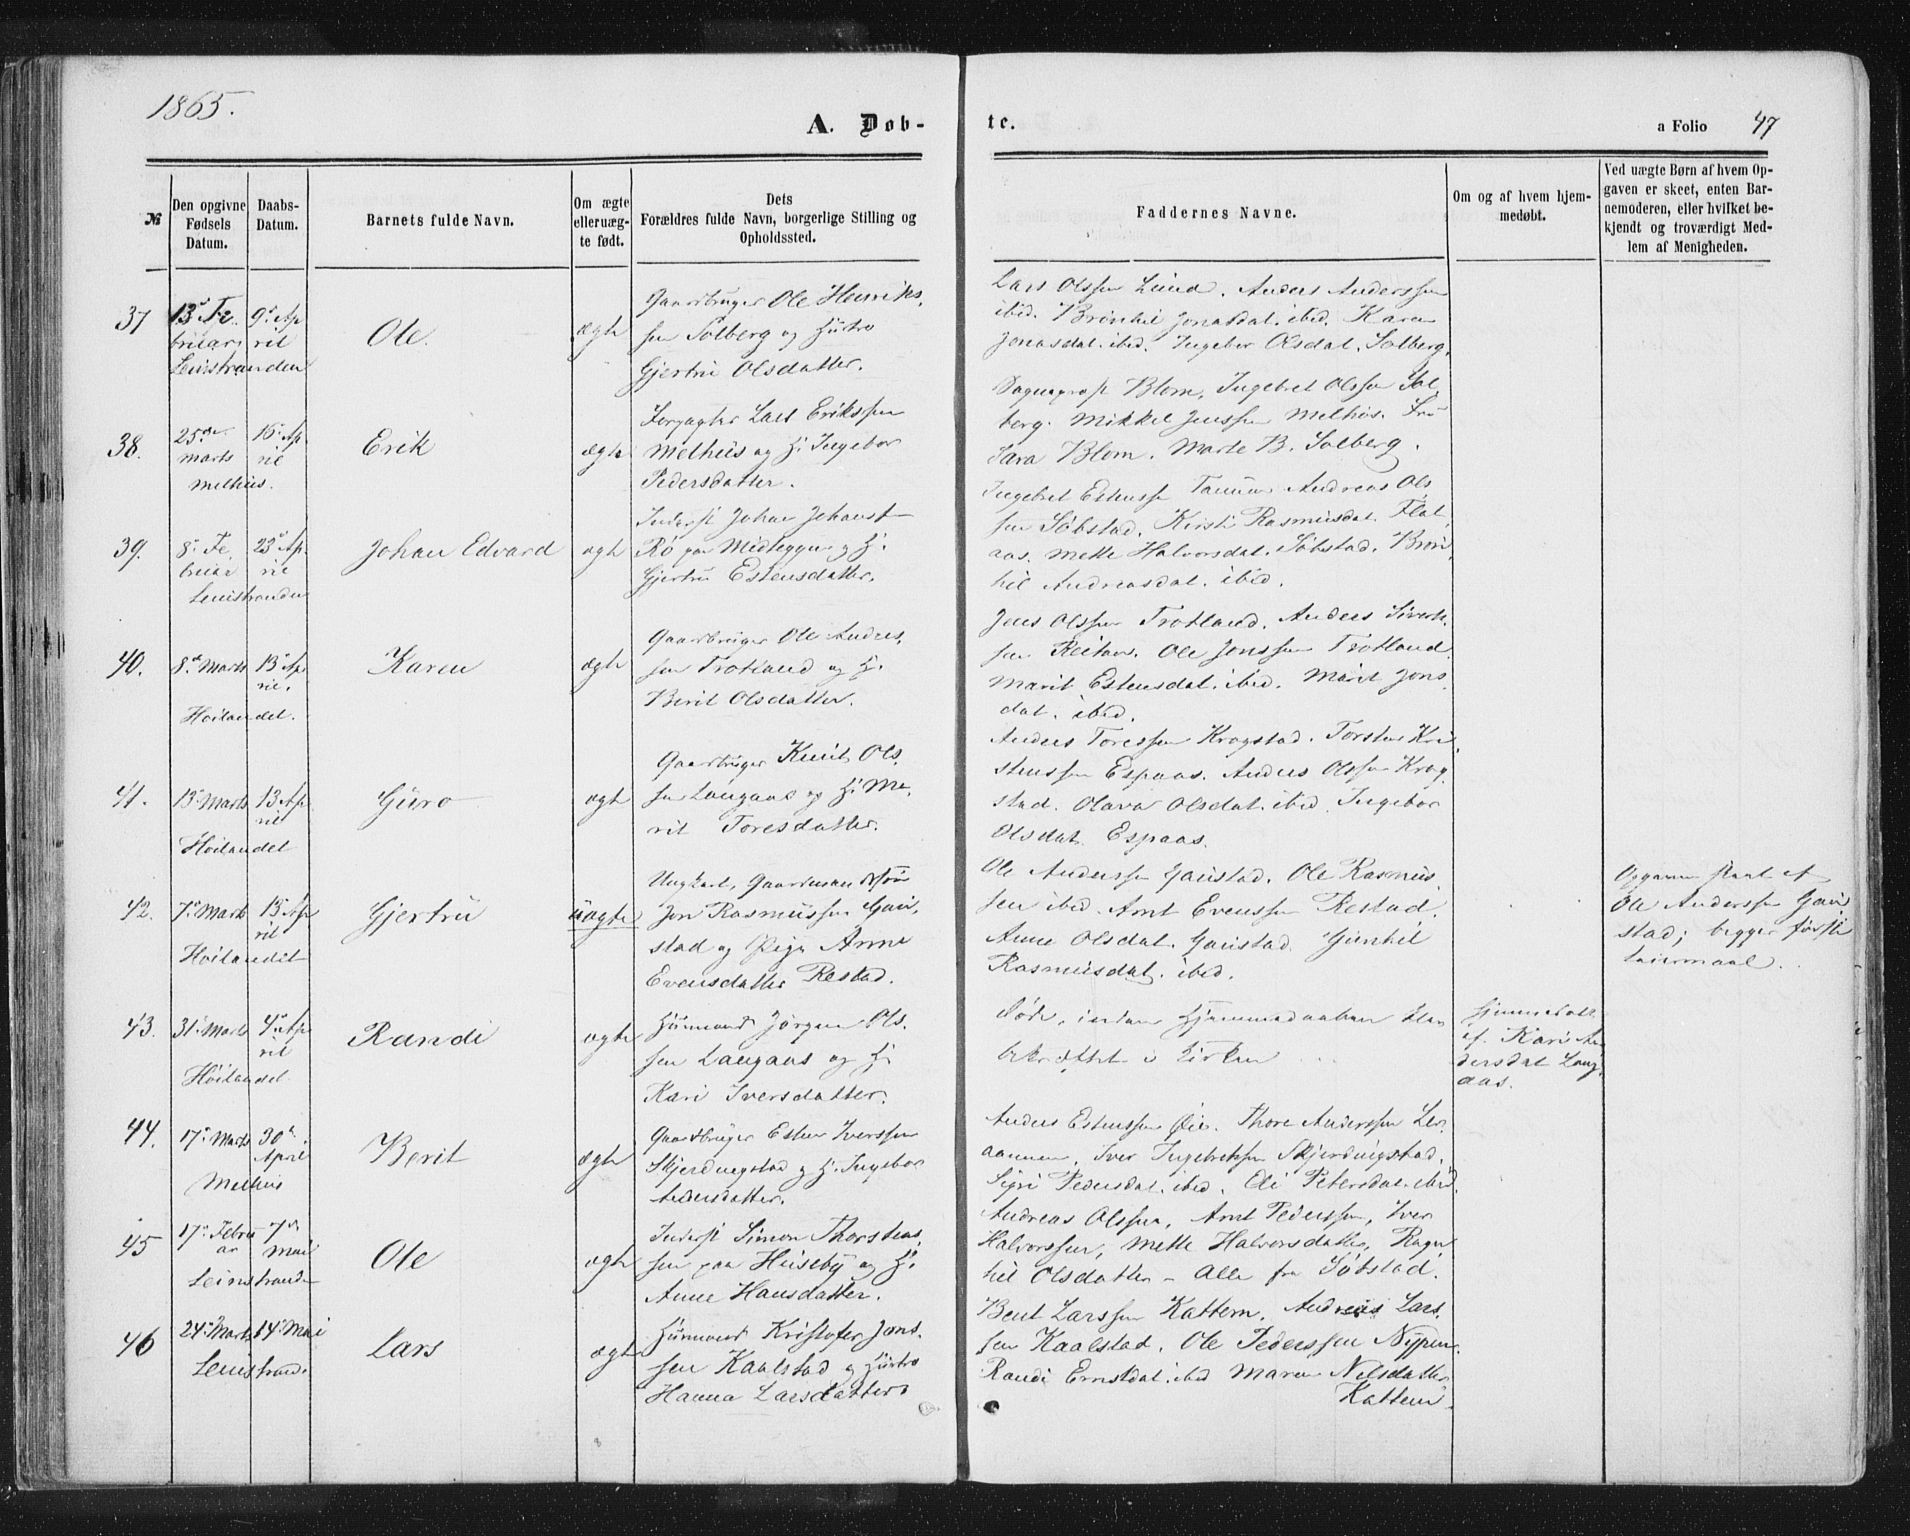 1865.
A. Døb-
te.
a Folio 47
№
Den opgivne Fødsels Datum.
Daabs-Datum.
Barnets fulde Navn.
Om ægte eller uæg-te født.
Dets Forældres fulde Navn, borgerlige Stilling og Opholdssted.
Faddernes Navne.
Om og af hvem hjem-medøbt.
Ved uægte Børn af hvem Op-gaven er skeet, enten Bar-nemoderen, eller hvilket be-kjendt og troværdigt Med-lem af Menigheden.
37
13de Fe-
bruar
Leinstranden
9de Ap
ril
Ole.
ægte
Gaardbruger Ole Henriks-
sen Solberg og Hustro
Gjertru Olsdatter.
Lars Olssen Lund. Anders Anderssen
ibid. Brønhil Jonasdat. ibid. Karen
Jonasdat. ibid. Ingebor Olsdat. Solberg.
38.
25de
Marts
Melhus.
16de Ap
ril
Erik
ægte
Lars Erikssen
Melhus og H. Ingebor
Pedersdatter.
Blom, Ingebret Olssen Sol
berg. Mikkel Jenssen Melhus. Fru
Sara Blom. Marte B. Solberg.
39.
8de Fe
bruar
Leinstranden
23de Ap
ril
Johan Edvard
ægte
Inderst Johan Johanse
Rø paa Midteggen og H.
Gjertru Estensdatter.
Ingebret Estensse Andreas Ols
sen Søbstad. Kirsti Rasmusdat. Flat
aas. Mette Halvorsdat. Søbstad. Brøn
hil Andreasdat. ibid.
40.
8de Marts
Høilandet.
13de Ap
ril.
Karen
ægte
Gaardbruger Ole Anders-
sen Trotland og H.
Berit Olsdatter.
Jens Olssen Trotland. Anders Siverts
sen Reitan. Ole Jonssen Trotland.
Marit Estensdat. ibid. Marit Jons
dat. ibid.
41.
13de Marts
Høilandet
13 Ap
ril
Guro
ægte
Gaardbruger Knut Ols-
sen Langaas og H. Ma-
rit Toresdatter.
Anders Toressen Krogstad. Torsten Kri
stenssen Espaas. Anders Olssen Krog
stad. Olava Olsdat. ibid. Ingebor
Olsdat. Espaas.
42.
7de Marts
Høilandet
13de Ap
ril
Gjertru
uægte
Ungkarl, Gaardmandssøn
Jon Rasmussen Gau-
stad og Pige Anne
Evensdatter Restad.
Ole Anderssen Gaustad. Ole Rasmus
sen ibid. Arnt Evenssen Restad.
Anne Olsdat. Gaustad. Gunhil
Rasmusdat. ibid.
Opgaven skeet af
Ole Anderssen Gau
stad; begges første
Leiermaal.
43.
31te Marts
Høilandet.
4de Ap
ril
Randi
ægte
Huusmand Jørgen Ols-
sen Langaas og H.
Kari Iversdatter.
Død, inden Hjemmedaaben blev
bekræftet i Kirken
Hjemmedøbt
af Kari An
dersdat Lang
aas.
44.
17de Marts
Melhus
30te
April
Berit
ægte
Gaardbruger Esten Iverssen
Skjerdingstad og H. Ingebor
Andersdatter.
Anders Estenssen Øie. Thore Anderssen Ler
Iver Ingebretssen Skjerdingstad.
Sigri Pedersdat. ibid. Eli Petersdat. ibid.
45
17de Febru
ar
Leinstranden
7de
Mai
Ole
ægte
Inderst Simon Thorstens-
sen paa Huseby og H.
Anne Hansdatter.
Andreas Olssen, Arnt Pederssen, Iver
Halvorssen, Mette Halvorsdatter, Ragn
hil Olsdatter - Alle fra Søbstad.
46
24de Marts
Leinstrand.
14de Mai
Lars
ægte
Huusmand Kristofer Jons-
sen Kaalstad og Hustro
Hanna Larsdatter
Bent Larssen Kattem. Andreas Lars-
sen Kaalstad. Ole Pederssen Nypan.
Randi Ernstdat. ibid Maren Nilsdatter
Kattem.